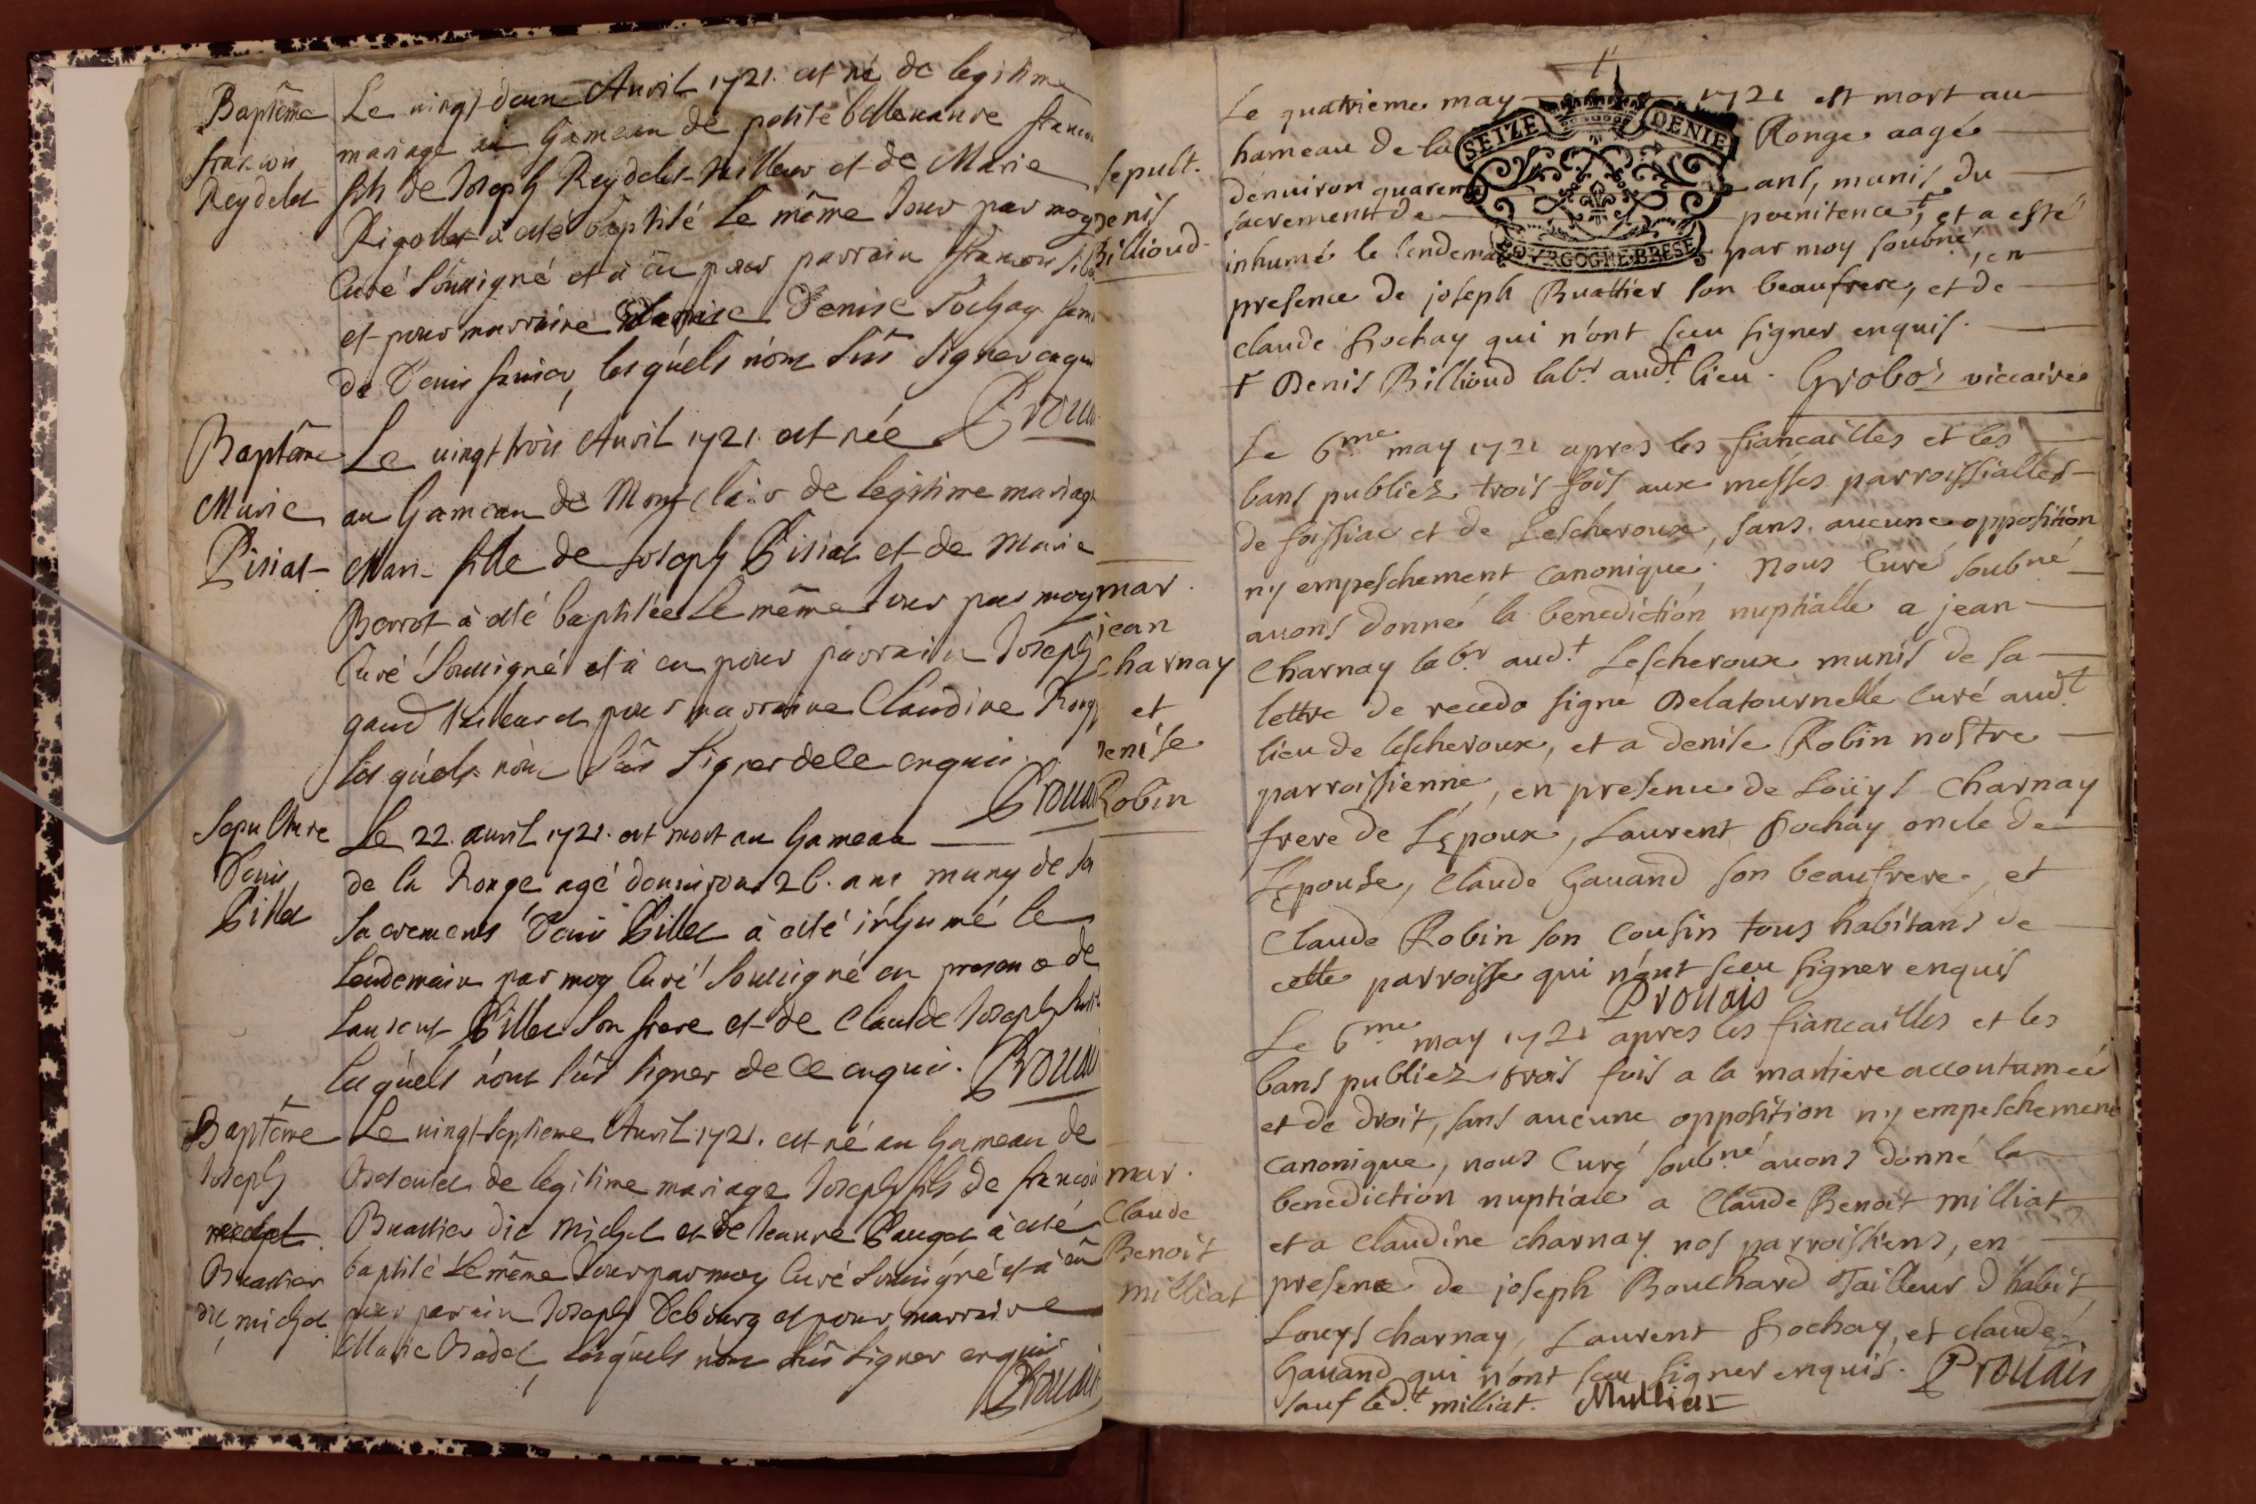 Baptême
francois
Reydelet
Le vingt deux Avril 1721. est né de legitime
mariage au hameau de petite bellevavre francois
fils de Joseph Reydelet tailleur et de Marie
Rigollet à été baptisé le même Jour par moy
Curé soussigné et à eu pour parrain francois
et pour marraine Denise Pochay
de Denis lesquels n'ont sus signer enquis
Prouais
Baptême
Marie
Pisiat
Le vingt trois Avril 1721. est née
au hameau de Montclair de legitime mariage
Marie fille de Joseph Pisiat et de Marie
Borrot à été baptisée le même Jour par moy
Curé soussigné et à eu pour parrain Joseph
gaud et pour marraine Claudine
lesquels n'ont sus signer de ce enquis
Prouais
Sepulture
Denis
Pillet
Le 22. avril 1721. est mort au hameau
de la Ronge agé d'environ 26. ans muny de
Sacremens Denis Pillet à été inhumé le
Lendemain par moy Curé soussigné en presence de
Laurent Pillet son frere et de Claude Joseph
lesquels n'ont sus signer de ce enquis. Prouais
Baptême
Joseph
Buattier
dit michel
Le vingt-septieme Avril 1721. est né au hameau de
de legitime mariage Joseph fils de francois
Buattier dit michel et de Jeanne Pauget à été
baptisé le même Jour par moy Curé soussigné et à eu
pour parrain Joseph Debourg et pour marraine
Marie Badet, lesquels n'ont sus signer enquis
Prouais
sepult.
Denis
Billioud
Le quatrieme may 1721 est mort au
hameau de la Ronge aagé
denuiron quarente ans, munis du
sacrement de poenitence, et a esté
inhumé le lendemain par moy soubné, en
presence de joseph Buattier son beaufrere, et de
claude Pochay qui n'ont sceu signer enquis.
+ Denis Billioud labr audt lieu. Grobos viccaire
SEIZE DENIE
BOVRGOGNE BRESE
mar.
jean
Charnay
et
denise
Robin
Le 6me may 1721 apres les fiancailles et les
bans publiez trois fois aux messes parroissialles
de foissiac et de Lescheroux, sans aucune opposition
ny empeschement canonique; Nous Curé soubné
auons donné la benediction nuptialle a jean
Charnay labr audt Lescheroux munis de sa
lettre de recedo signé Delatournelle Curé audt
lieu de lescheroux, et a denise Robin nostre
parroissienne, en presence de Loüys Charnay
frere de L'époux, Laurent Pochay oncle de
L'épouse, Claude Gauand son beaufrere, et
Claude Robin son Cousin tous habitans de
cette parroisse qui n'ont sceu signer enquis
Prouais
mar.
Claude
Benoit
Milliat
Le 6me may 1721 apres les fiancailles et les
bans publiez trois fois a la maniere accoutumeé
et de droit, sans aucune opposition ny empeschement
canonique, nous Curé soubné auons donné la
benediction nuptiale a Claude Benoit milliat
et a claudine charnay nos parroissiens, en
presence de joseph Bouchard Tailleur d habit
Louys charnay, Laurent Pochay, et claude
Gauand qui n'ont sceu signer enquis. Prouais
sauf ledt milliat. Milliat